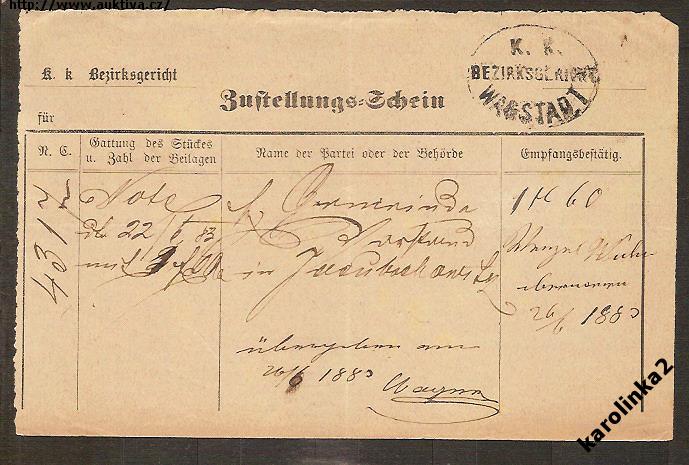 http://www.auktiva.cz/
K. K.
BEZIRKSGERICHT
WAGSTADT
K. k Bezirksgericht
Zustellungs-Schein
für
N. C.
Gattung des Stückes
u. Zahl der Beilagen
Name der Partei oder der Behörde
Empfangsbestätig.
4312
Note
22/6 83
mit
Gemeinde
Vorstand
in
übergeben am
26/6 1883
1 60
Wenzel
übernommen
26/6 1883
karolinka2